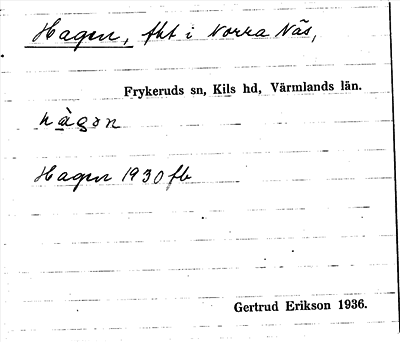 Hagen, fht i Norra Näs,
Frykeruds sn, Kils hd, Värmlands län.
hàgɔn
Hagen 1930 fb
Gertrud Erikson 1936.